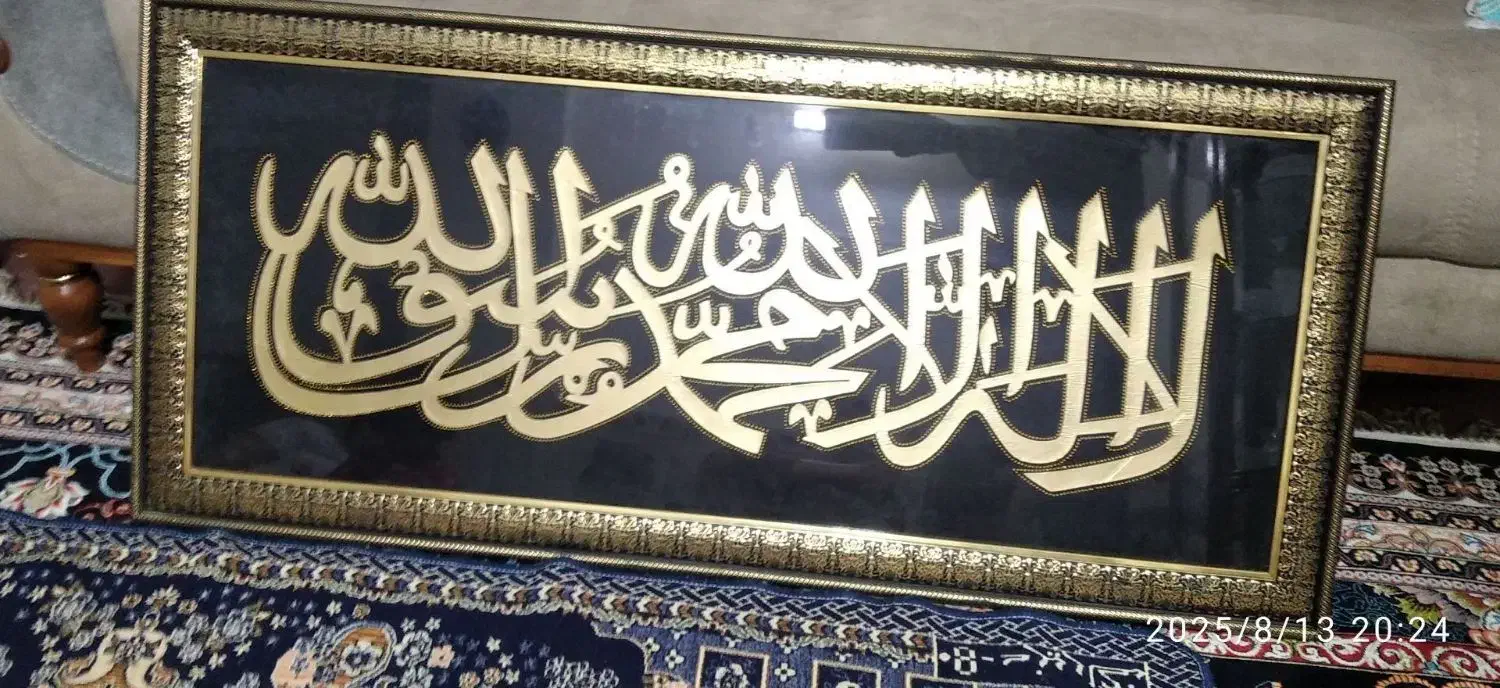 لا إله إلا الله محمد رسول الله
2025/8/13 20:24